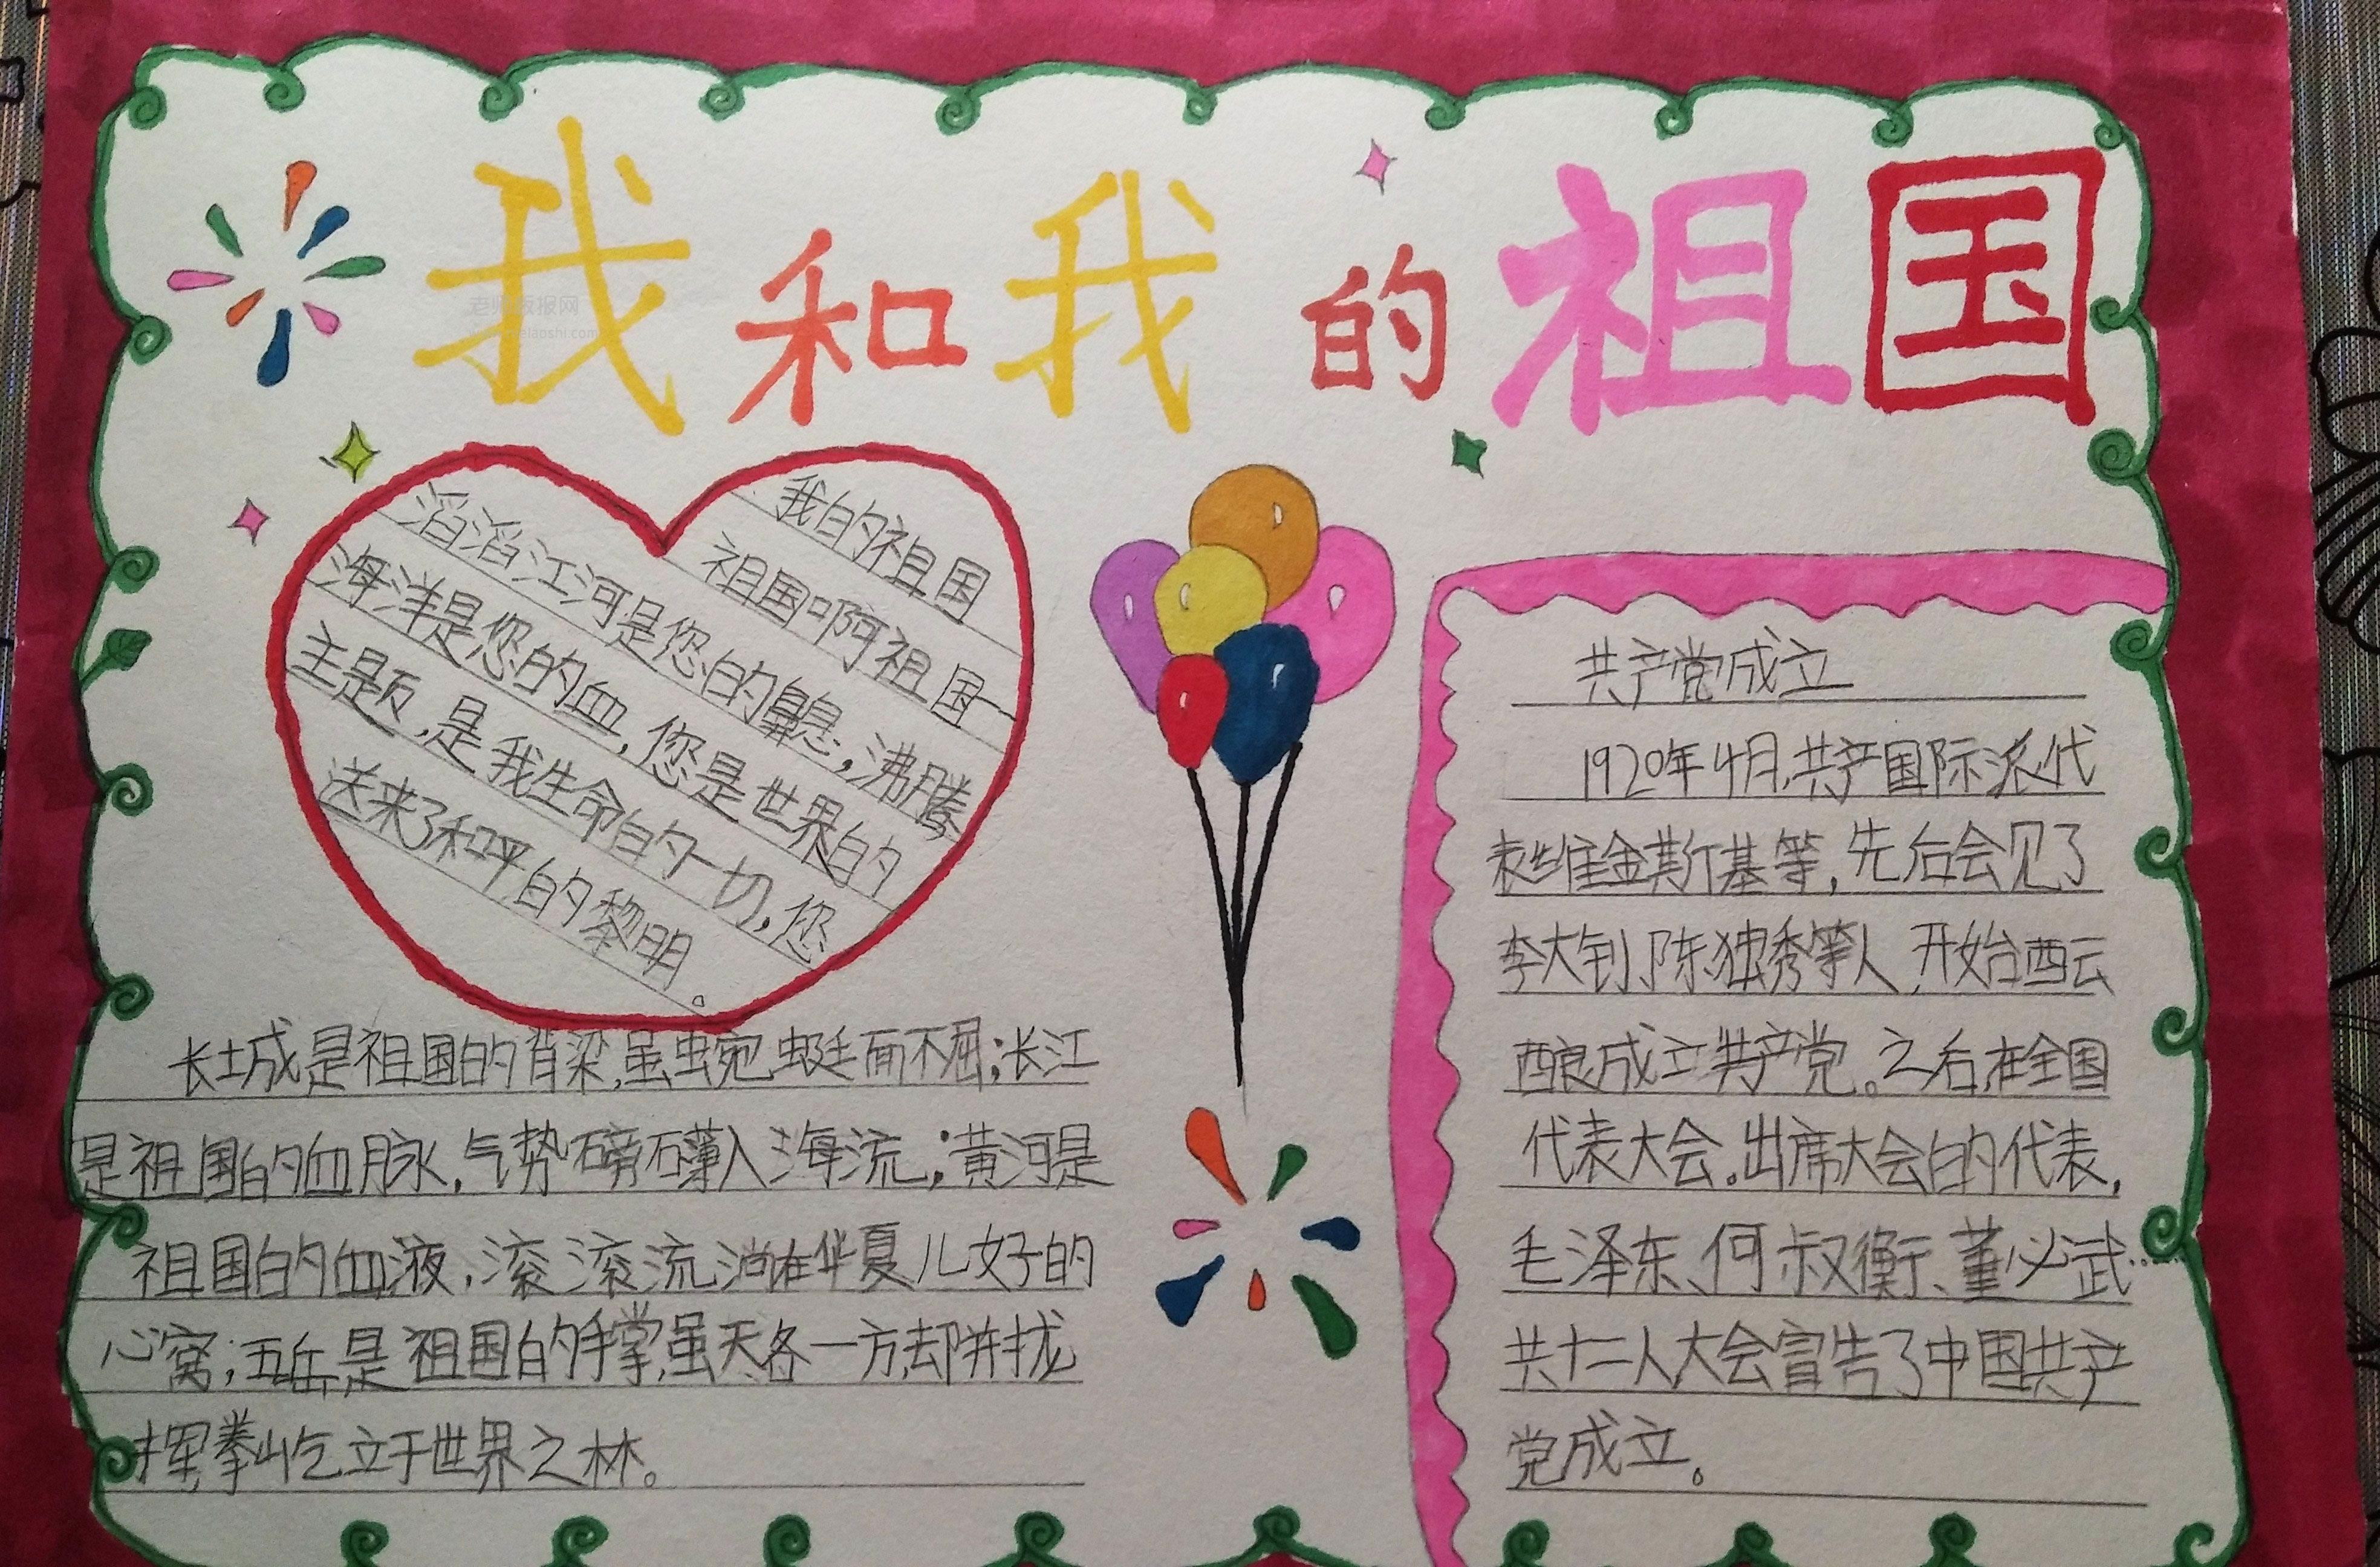 我和我的祖国
老师板报网
我的祖国
祖国啊祖国
滔滔江河是您的鼻息,沸腾
海洋是您的血,您是世界的
主题,是我生命的一切,您
送来了和平的黎明。
长城是祖国的背梁,虽蜿蜒而不屈;长江
是祖国的血脉,气势磅礴入海流;黄河是
祖国的血液,滚滚流淌在华夏儿女子的
心窝;五岳是祖国的手掌,虽天各一方,却并拢
挥拳屹立于世界之林。
共产党成立
1920年4月,共产国际派代
表维金斯基等,先后会见了
李大钊、陈独秀等人,开始酝
酿成立共产党。之后在全国
代表大会。出席大会的代表,
毛泽东、何叔衡、董必武…
共十二人大会宣告了中国共产
党成立。